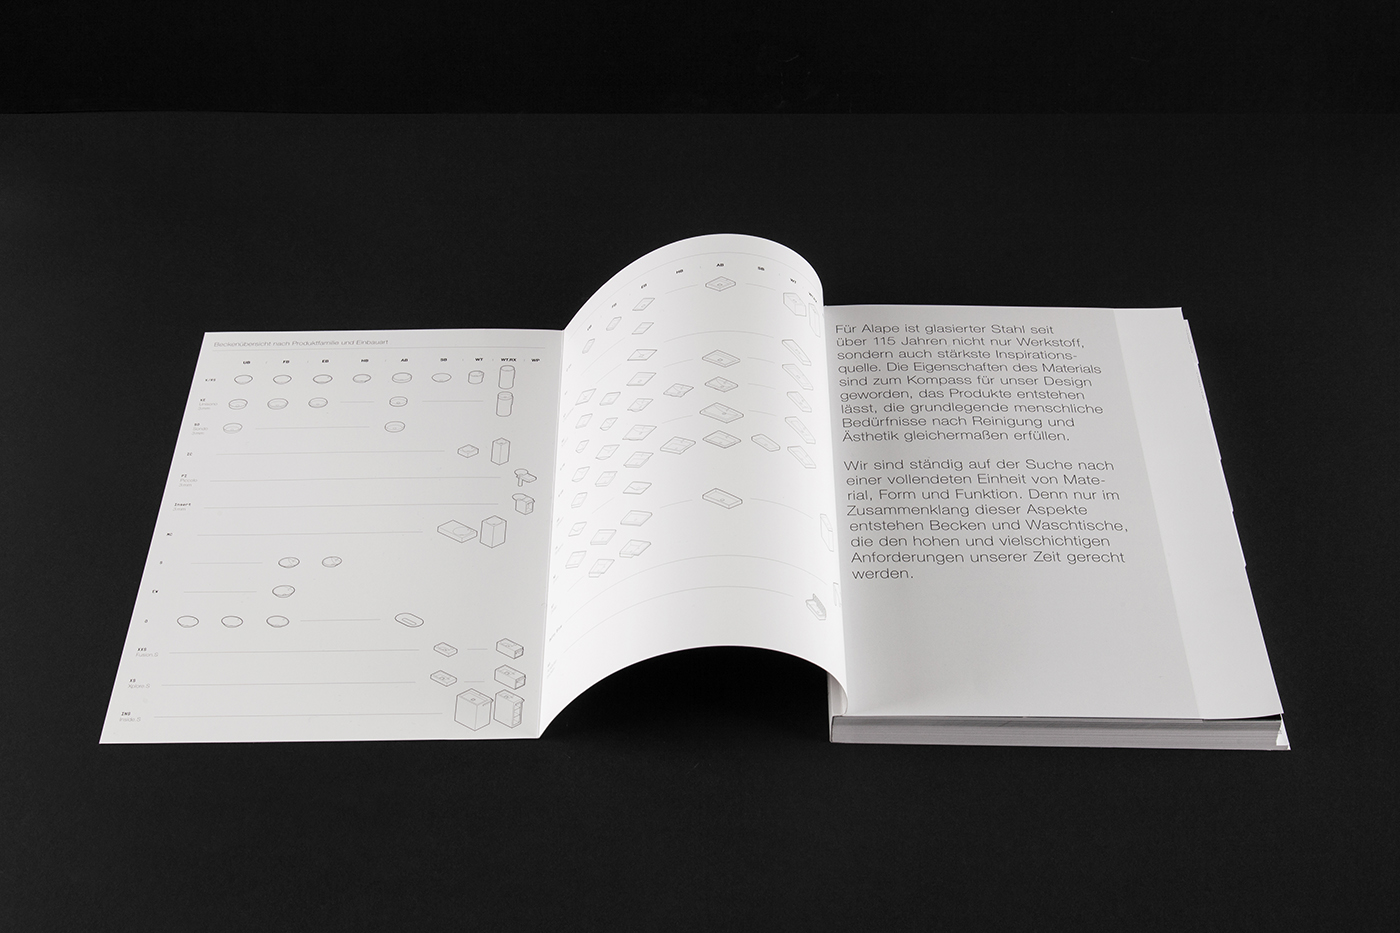 Beckenübersicht nach Produktfamilie und Einbauart
UB FB EB HB AB SB WT WT.RX WP
EC
Insert
MC
EW
XXS
Fusion.S
XS
Xplore.S
INS
Insite.S
EB HB AB SB WT
Für Alape ist glasierter Stahl seit
über 115 Jahren nicht nur Werkstoff,
sondern auch stärkste Inspirations-
quelle. Die Eigenschaften des Materials
sind zum Kompass für unser Design
geworden, das Produkte entstehen
lässt, die grundlegende menschliche
Bedürfnisse nach Reinigung und
Ästhetik gleichermaßen erfüllen.
Wir sind ständig auf der Suche nach
einer vollendeten Einheit von Mate-
rial, Form und Funktion. Denn nur im
Zusammenklang dieser Aspekte
entstehen Becken und Waschtische,
die den hohen und vielschichtigen
Anforderungen unserer Zeit gerecht
werden.